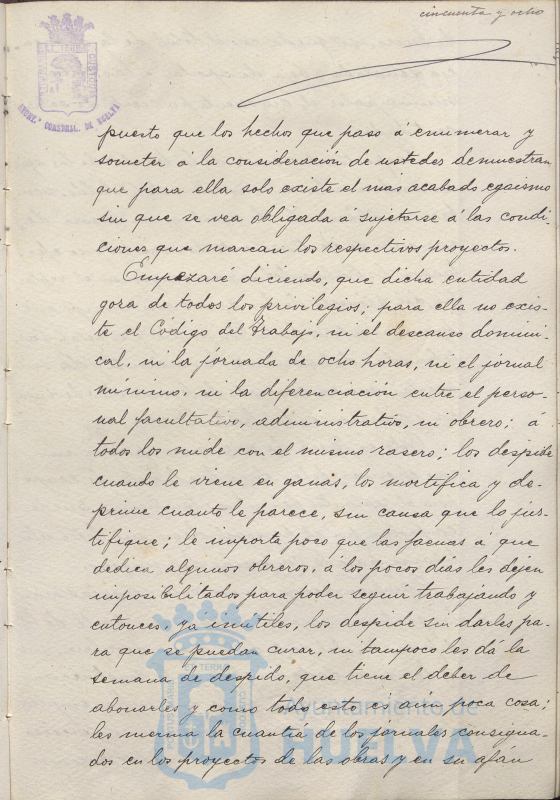 cincuenta y ocho
AYUNT.º CONSTNAL. DE HUELVA
puesto que los hechos que paso á enumerar y
someter á la consideración de ustedes demuestran
que para ella solo existe el mas acabado egoismo
sin que se vea obligada á sujetarse á las condi-
ciones que marcan los respectivos proyectos.
Empezaré diciendo, que dicha entidad
goza de todos los privilegios; para ella no exis-
te el Código del Trabajo, ni el descanso domini-
cal, ni la jórnada de ocho horas, ni el jornal
mínimo, ni la diferenciación entre el perso-
nal facultativo, administrativo, ni obrero; á
todos los mide con el mismo rasero; los despide
cuando le viene en ganas, los mortifica y de-
prime cuanto le parece, sin causa que lo jus-
tifique; le importa poco que las faenas á que
dedica algunos obreros, á los pocos días les dejen
imposibilitados para poder seguir trabajando y
entonces, ya inútiles, los despide sin darles pa-
ra que se puedan curar, ni tampoco les dá la
semana de despido, que tiene el deber de
abonarles y como todo esto es aún poca cosa;
les merma la cuantía de los jornales consigna-
dos en los proyectos de las obras y en su afán
Ayuntamiento de
HUELVA